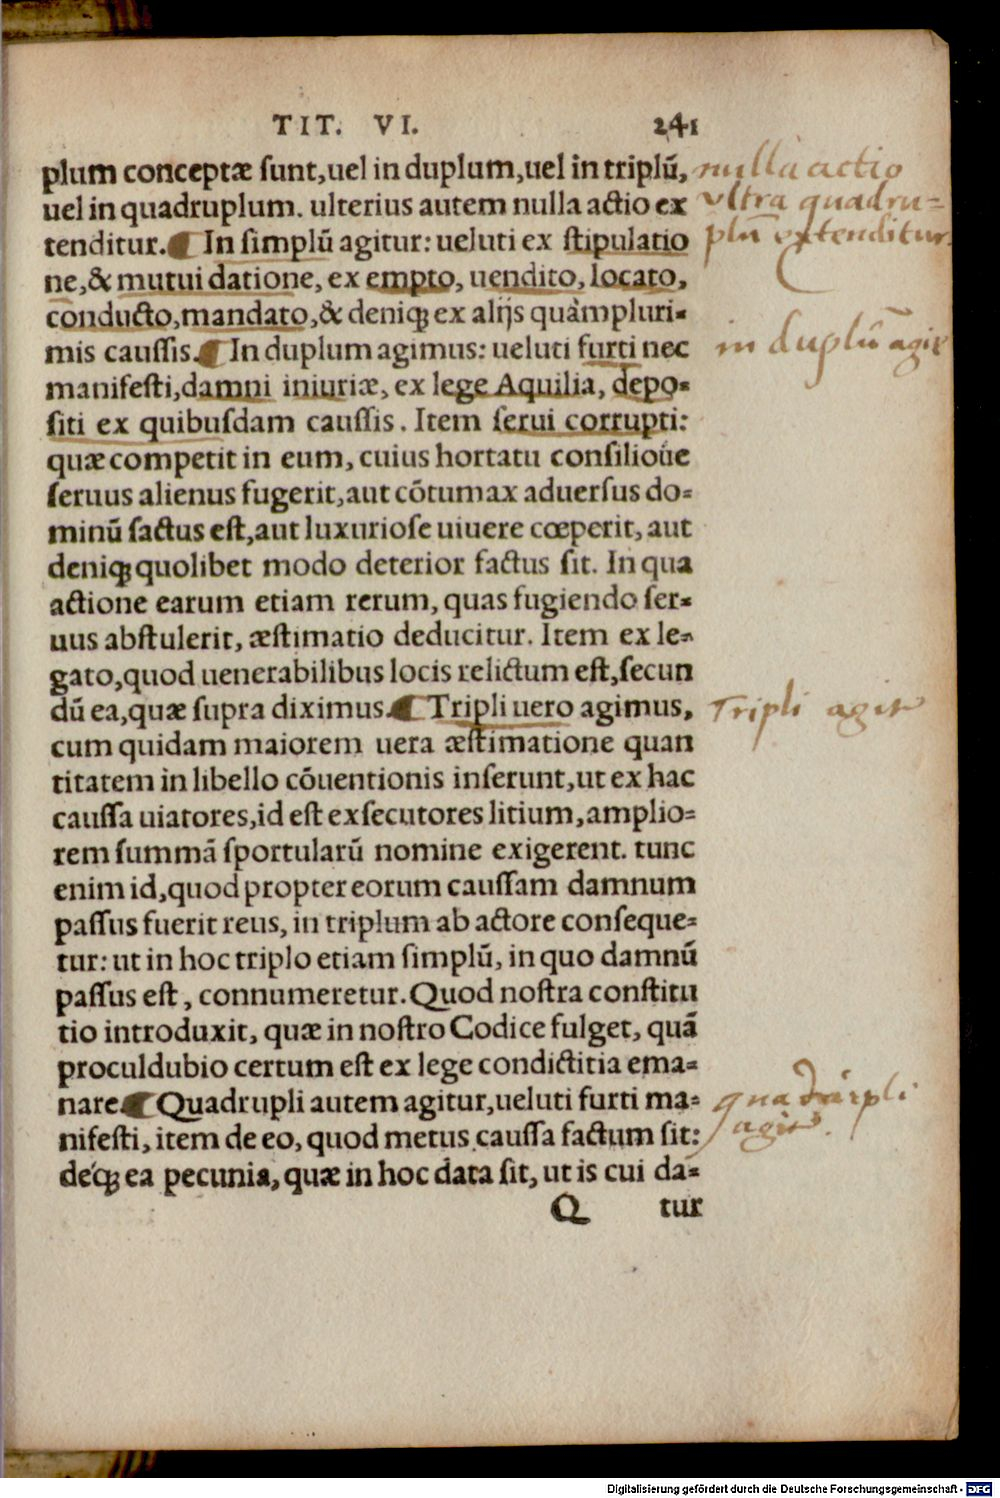 TIT. VI. 241
plum conceptæ sunt,uel in duplum,uel in triplũ,
uel in quadruplum. ulterius autem nulla actio ex
tenditur.¶ In simplũ agitur: ueluti ex stipulatio
ne,& mutui datione, ex empto, uendito, locato,
conducto,mandato,& deniq; ex alijs quàmpluri-
mis caussis.¶ In duplum agimus: ueluti furti nec
manifesti,damni iniuriæ, ex lege Aquilia, depo-
siti ex quibusdam caussis. Item serui corrupti:
quæ competit in eum, cuius hortatu consilioúe
seruus alienus fugerit,aut cõtumax aduersus do-
minũ factus est,aut luxuriose uiuere cœperit, aut
deniq; quolibet modo deterior factus sit. In qua
actione earum etiam rerum, quas fugiendo ser-
uus abstulerit, æstimatio deducitur. Item ex le-
gato,quod uenerabilibus locis relictum est,secun
dũ ea,quæ supra diximus.¶ Tripli uero agimus,
cum quidam maiorem uera æstimatione quan
titatem in libello cõuentionis inserunt,ut ex hac
caussa uiatores,id est exsecutores litium,amplio-
rem summã sportularũ nomine exigerent. tunc
enim id,quod propter eorum caussam damnum
passus fuerit reus, in triplum ab actore conseque-
tur: ut in hoc triplo etiam simplũ, in quo damnũ
passus est, connumeretur. Quod nostra constitu
tio introduxit, quæ in nostro Codice fulget, quã
proculdubio certum est ex lege condictitia ema-
nare.¶ Quadrupli autem agitur,ueluti furti ma-
nifesti, item de eo, quod metus caussa factum sit:
déq; ea pecunia, quæ in hoc data sit, ut is cui da-
Q tur
nulla actio
vltra quadru-
plũ extenditur.
in duplũ agit
Tripli agit
quadrupli
agit.
Digitalisierung gefördert durch die Deutsche Forschungsgemeinschaft - DFG